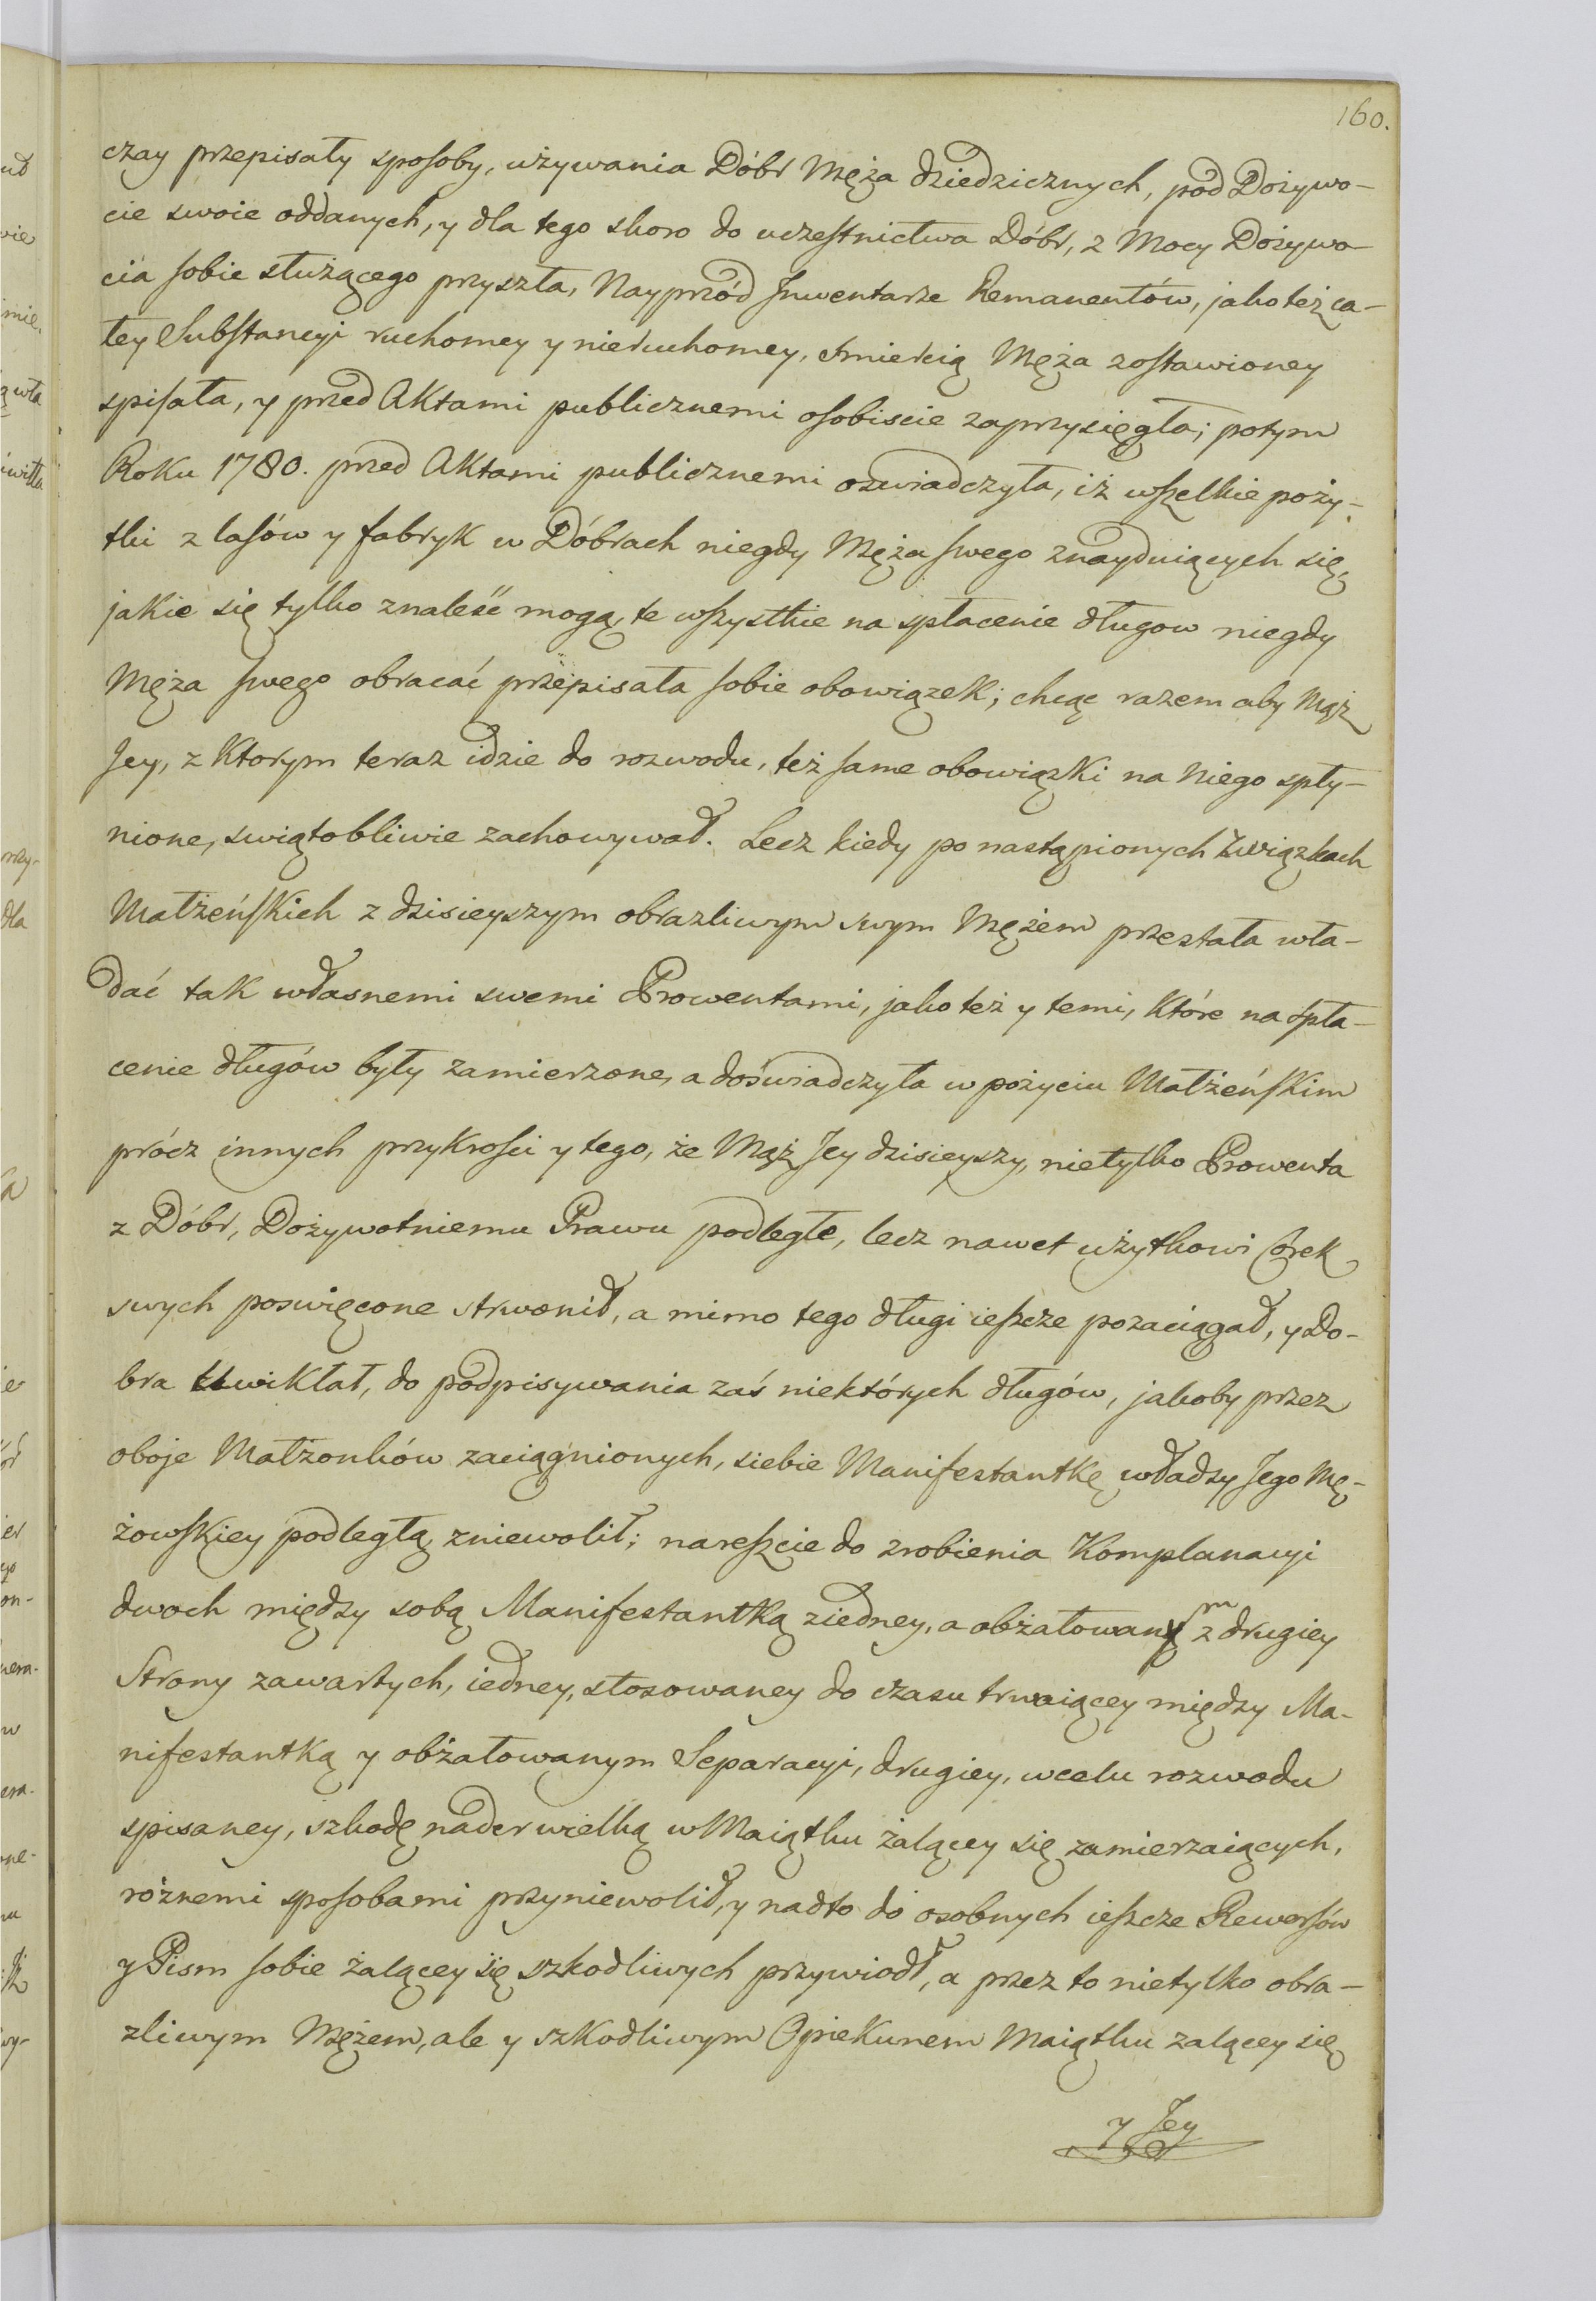 160.
czay przepisały sposoby, używania Dóbr Męża dziedzicznych, pod Dożywo-
cie swoie oddanych, y dla tego skoro do uczestnictwa Dóbr, z Mocy Dożywo-
cia sobie służącego przyszła, Nayprzód Jnwentarze Remanentów, jako też ca-
łey Substancyi ruchomey y nieruchomey, śmiercią Męża zostawioney
spisała, y przed Aktami publicznemi osobiscie zaprzysięgła; potym
Roku 1780. przed Aktami publicznemi oswiadczyła, iż wszelkie poży-
tki z lasów y fabryk w Dóbrach niegdy Męża swego znayduiących się,
jakie się tylko znaleść mogą, te wszystkie na spłacenie długow niegdy
Męża swego obracać przepisała sobie obowiązek; chcąc razem aby Mąż
Jey, z Ktorym teraz idzie do rozwodu, też same obowiązki na Niego spły-
nione, swiątobliwie zachowywał. Lecz kiedy po nastąpionych Związkach
Małżeńskich z dzisieyszym obrazliwym swym Mężem przestała wła-
dać tak własnemi swemi Prowentami, jako też y temi, które na spła-
cenie długów były zamierzone, a doświadczyła w pożyciu Małżeńskim
prócz innych przykrości y tego, że Mąż Jey dzisieyszy, nietylko Prowenta
z Dóbr, Dożywotniemu Prawu podległe, lecz nawet użytkowi Córek
swych poswięcone strwonił, a mimo tego długi ieszcze pozaciągał, y Do-
bra uwikłał, do podpisywania zaś niektórych długów, jakoby przez
oboje Małżonków zaciągnionych, siebie Manifestantkę władzy Jego Mę-
żowskiey podległą zniewolił; nareszcie do zrobienia Komplanacyi
dwoch między sobą Manifestantką ziedney, a obżałowanym z drugiey
Strony zawartych, iedney, stosowaney do czasu trwaiącey między Ma-
nifestantką y obżałowanym Separacyi, drugiey, wcelu rozwodu
spisaney, szkodę nader wielką w Maiątku żalącey się zamierzaiących,
róznemi sposobami przyniewolił, y nadto do osobnych ieszcze Rewersów
y Pism sobie żalącey się szkodliwych przywiodł, a przez to nietylko obra-
zliwym Mężem, ale y szkodliwym Opiekunem Maiątku zalącey się
y Jey